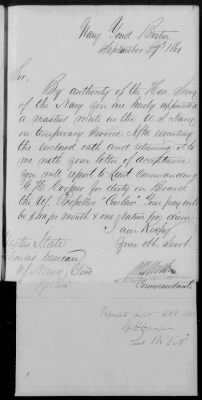 Navy Yard Boston
September 27th 1861
Sir
By authority of the Hon. Secy
of the Navy you are hereby appointed
a masters mate in the U.S. Navy
on temporary service. After executing
the enclosed oath and returning it to
me with your letter of acceptance
you will report to Lieut. Commanding
G. H. Cooper for duty on Board
the U.S. Propeller "Curlew" Your pay will
be $ per month & one ration per diem
I am Resp'y
Your obt. Servt.
Commandant
Thomas
U.S. Navy
Boston
Reported